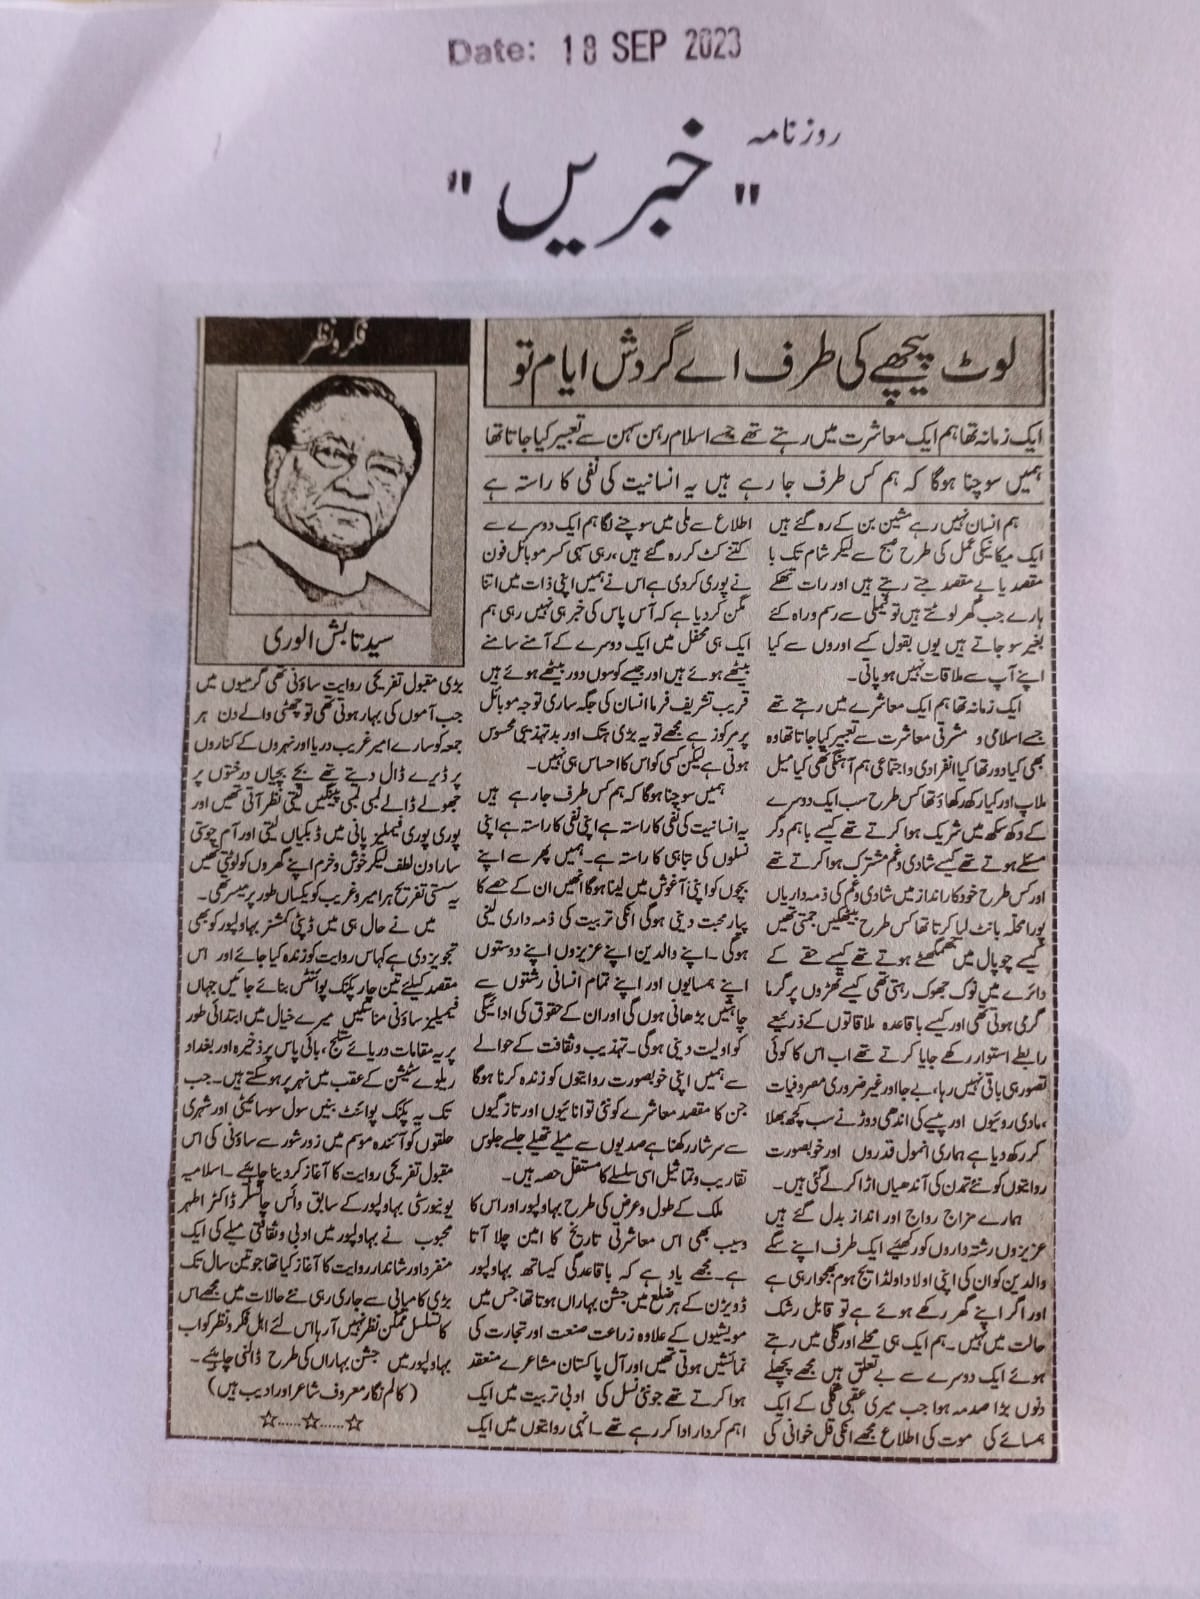 Date: 18 SEP 2023
روزنامہ
"خبریں"
لوٹ پیچھے کی طرف اے گردش ایام تو
ایک زمانہ تھا ہم ایک معاشرت میں رہتے تھے جسے اسلام رہن سہن سے تعبیر کیا جاتا تھا
ہمیں سوچنا ہوگا کہ ہم کس طرف جا رہے ہیں یہ انسانیت کی نفی کا راستہ ہے
فکر و نظر
سید تابش الوری
ہم انسان نہیں رہے مشین بن کے رہ گئے ہیں
ایک میکانیکی عمل کی طرح صبح سے لیکر شام تک با
مقصد یا بے مقصد جتے رہتے ہیں اور رات تھکے
ہارے جب گھر لوٹتے ہیں تو فیملی سے رسم و راہ کئے
بغیر سو جاتے ہیں یوں بقول کسے اوروں سے کیا
اپنے آپ سے ملاقات نہیں ہو پاتی۔
ایک زمانہ تھا ہم ایک معاشرے میں رہتے تھے
جسے اسلامی و مشرقی معاشرت سے تعبیر کیا جاتا تھا وہ
بھی کیا دور تھا کیا انفرادی و اجتماعی ہم آہنگی تھی کیا میل
ملاپ اور کیا رکھ رکھاؤ تھا کس طرح سب ایک دوسرے
کے دکھ سکھ میں شریک ہوا کرتے تھے کیسے باہم دگر
مسئلے ہوتے تھے کیسے شادی و غم مشترک ہوا کرتے تھے
اور کس طرح خودکار انداز میں شادی و غم کی ذمہ داریاں
پورا محلہ بانٹ لیا کرتا تھا کس طرح بیٹھکیں جمتی تھیں
کیسے چوپال میں جمگھٹے ہوتے تھے کیسے حقے کے
دائرے میں نوک جھوک رہتی تھی کیسے تھڑوں پر گرما
گرمی ہوتی تھی اور کیسے باقاعدہ ملاقاتوں کے ذریعے
رابطے استوار رکھے جایا کرتے تھے اب اس کا کوئی
تصور ہی باقی نہیں رہا، بے جا اور غیر ضروری مصروفیات
،مادی رویوں اور پیسے کی اندھی دوڑ نے سب کچھ بھلا
کر رکھ دیا ہے ہماری انمول قدروں اور خوبصورت
روایتوں کو نئے تمدن کی آندھیاں اڑا کر لے گئی ہیں۔
ہمارے مزاج رواج اور انداز بدل گئے ہیں
عزیزوں رشتہ داروں کو رکھیئے ایک طرف اپنے سگے
والدین کو ان کی اپنی اولاد اولڈ ایج ہوم بھجوا رہی ہے
اور اگر اپنے گھر رکھے ہوئے ہے تو قابل رشک
حالت میں نہیں۔ ہم ایک ہی محلے اور گلی میں رہتے
ہوئے ایک دوسرے سے بے تعلق ہیں مجھے پچھلے
دنوں بڑا صدمہ ہوا جب میری عقبی گلی کے ایک
ہمسائے کی موت کی اطلاع مجھے انکی قل خوانی کی
اطلاع سے ملی میں سوچنے لگا ہم ایک دوسرے سے
کتنے کٹ کر رہ گئے ہیں، رہی سہی کسر موبائل فون
نے پوری کر دی ہے اس نے ہمیں اپنی ذات میں اتنا
مگن کر دیا ہے کہ آس پاس کی خبر ہی نہیں رہی ہم
ایک ہی محفل میں ایک دوسرے کے آمنے سامنے
بیٹھے ہوئے ہیں اور جیسے کوسوں دور بیٹھے ہوئے ہیں
قریب تشریف فرما انسان کی جگہ ساری توجہ موبائل
پر مرکوز ہے مجھے تو یہ بڑی ہتک اور بدتہذیبی محسوس
ہوتی ہے لیکن کسی کو اس کا احساس ہی نہیں۔
ہمیں سوچنا ہوگا کہ ہم کس طرف جا رہے ہیں
یہ انسانیت کی نفی کا راستہ ہے اپنی نفی کا راستہ ہے اپنی
نسلوں کی تباہی کا راستہ ہے۔ ہمیں پھر سے اپنے
بچوں کو اپنی آغوش میں لینا ہوگا انھیں ان کے حصے کا
پیار محبت دینی ہوگی انکی تربیت کی ذمہ داری لینی
ہوگی۔ اپنے والدین اپنے عزیزوں اپنے دوستوں
اپنے ہمسایوں اور اپنے تمام انسانی رشتوں سے
چاہتیں بڑھانی ہوں گی اور ان کے حقوق کی ادائیگی
کو اولیت دینی ہوگی۔ تہذیب و ثقافت کے حوالے
سے ہمیں اپنی خوبصورت روایتوں کو زندہ کرنا ہوگا
جن کا مقصد معاشرے کو نئی توانائیوں اور تازگیوں
سے سرشار رکھنا ہے صدیوں سے میلے ٹھیلے جلسے جلوس
تقاریب و تماثیل اسی سلسلے کا مستقل حصہ ہیں۔
ملک کے طول و عرض کی طرح بہاولپور اور اس کا
وسیب بھی اس معاشرتی تاریخ کا امین چلا آتا
ہے۔ مجھے یاد ہے کہ باقاعدگی کیساتھ بہاولپور
ڈویژن کے ہر ضلع میں جشن بہاراں ہوتا تھا جس میں
مویشیوں کے علاوہ زراعت صنعت اور تجارت کی
نمائشیں ہوتی تھیں اور آل پاکستان مشاعرے منعقد
ہوا کرتے تھے جو نئی نسل کی ادبی تربیت میں ایک
اہم کردار ادا کر رہے تھے۔ انہی روایتوں میں ایک
بڑی مقبول تفریحی روایت ساؤنی تھی گرمیوں میں
جب آموں کی بہار ہوتی تھی تو چھٹی والے دن ہر
جمعہ کو سارے امیر غریب دریا اور نہروں کے کناروں
پر ڈیرے ڈال دیتے تھے بچے بچیاں درختوں پر
جھولے ڈالے لمبی لمبی پینگیں لیتی نظر آتی تھیں اور
پوری پوری فیملیز پانی میں ڈبکیاں لیتی اور آم چوستی
سارا دن لطف لیکر خوش و خرم اپنے گھروں کو لوٹتی تھیں
یہ سستی تفریح ہر امیر و غریب کو یکساں طور پر میسر تھی۔
میں نے حال ہی میں ڈپٹی کمشنر بہاولپور کو بھی
تجویز دی ہے کہ اس روایت کو زندہ کیا جائے اور اس
مقصد کیلئے تین چار پکنک پوائنٹس بنائے جائیں جہاں
فیملیز ساؤنی منا سکیں میرے خیال میں ابتدائی طور
پر یہ مقامات دریائے ستلج، بائی پاس پر ذخیرہ اور بغداد
ریلوے سٹیشن کے عقب میں نہر پر ہو سکتے ہیں۔ جب
تک یہ پکنک پوائنٹ بنیں سول سوسائٹی اور شہری
حلقوں کو آئندہ موسم میں زور شور سے ساؤنی کی اس
مقبول تفریحی روایت کا آغاز کر دینا چاہئے۔ اسلامیہ
یونیورسٹی بہاولپور کے سابق وائس چانسلر ڈاکٹر اطہر
محبوب نے بہاولپور میں ادبی و ثقافتی میلے کی ایک
منفرد اور شاندار روایت کا آغاز کیا تھا جو تین سال تک
بڑی کامیابی سے جاری رہی نئے حالات میں مجھے اس
کا تسلسل ممکن نظر نہیں آ رہا اس لئے اہل فکر و نظر کو اب
بہاولپور میں جشن بہاراں کی طرح ڈالنی چاہئے۔
(کالم نگار معروف شاعر اور ادیب ہیں)
☆.....☆.....☆